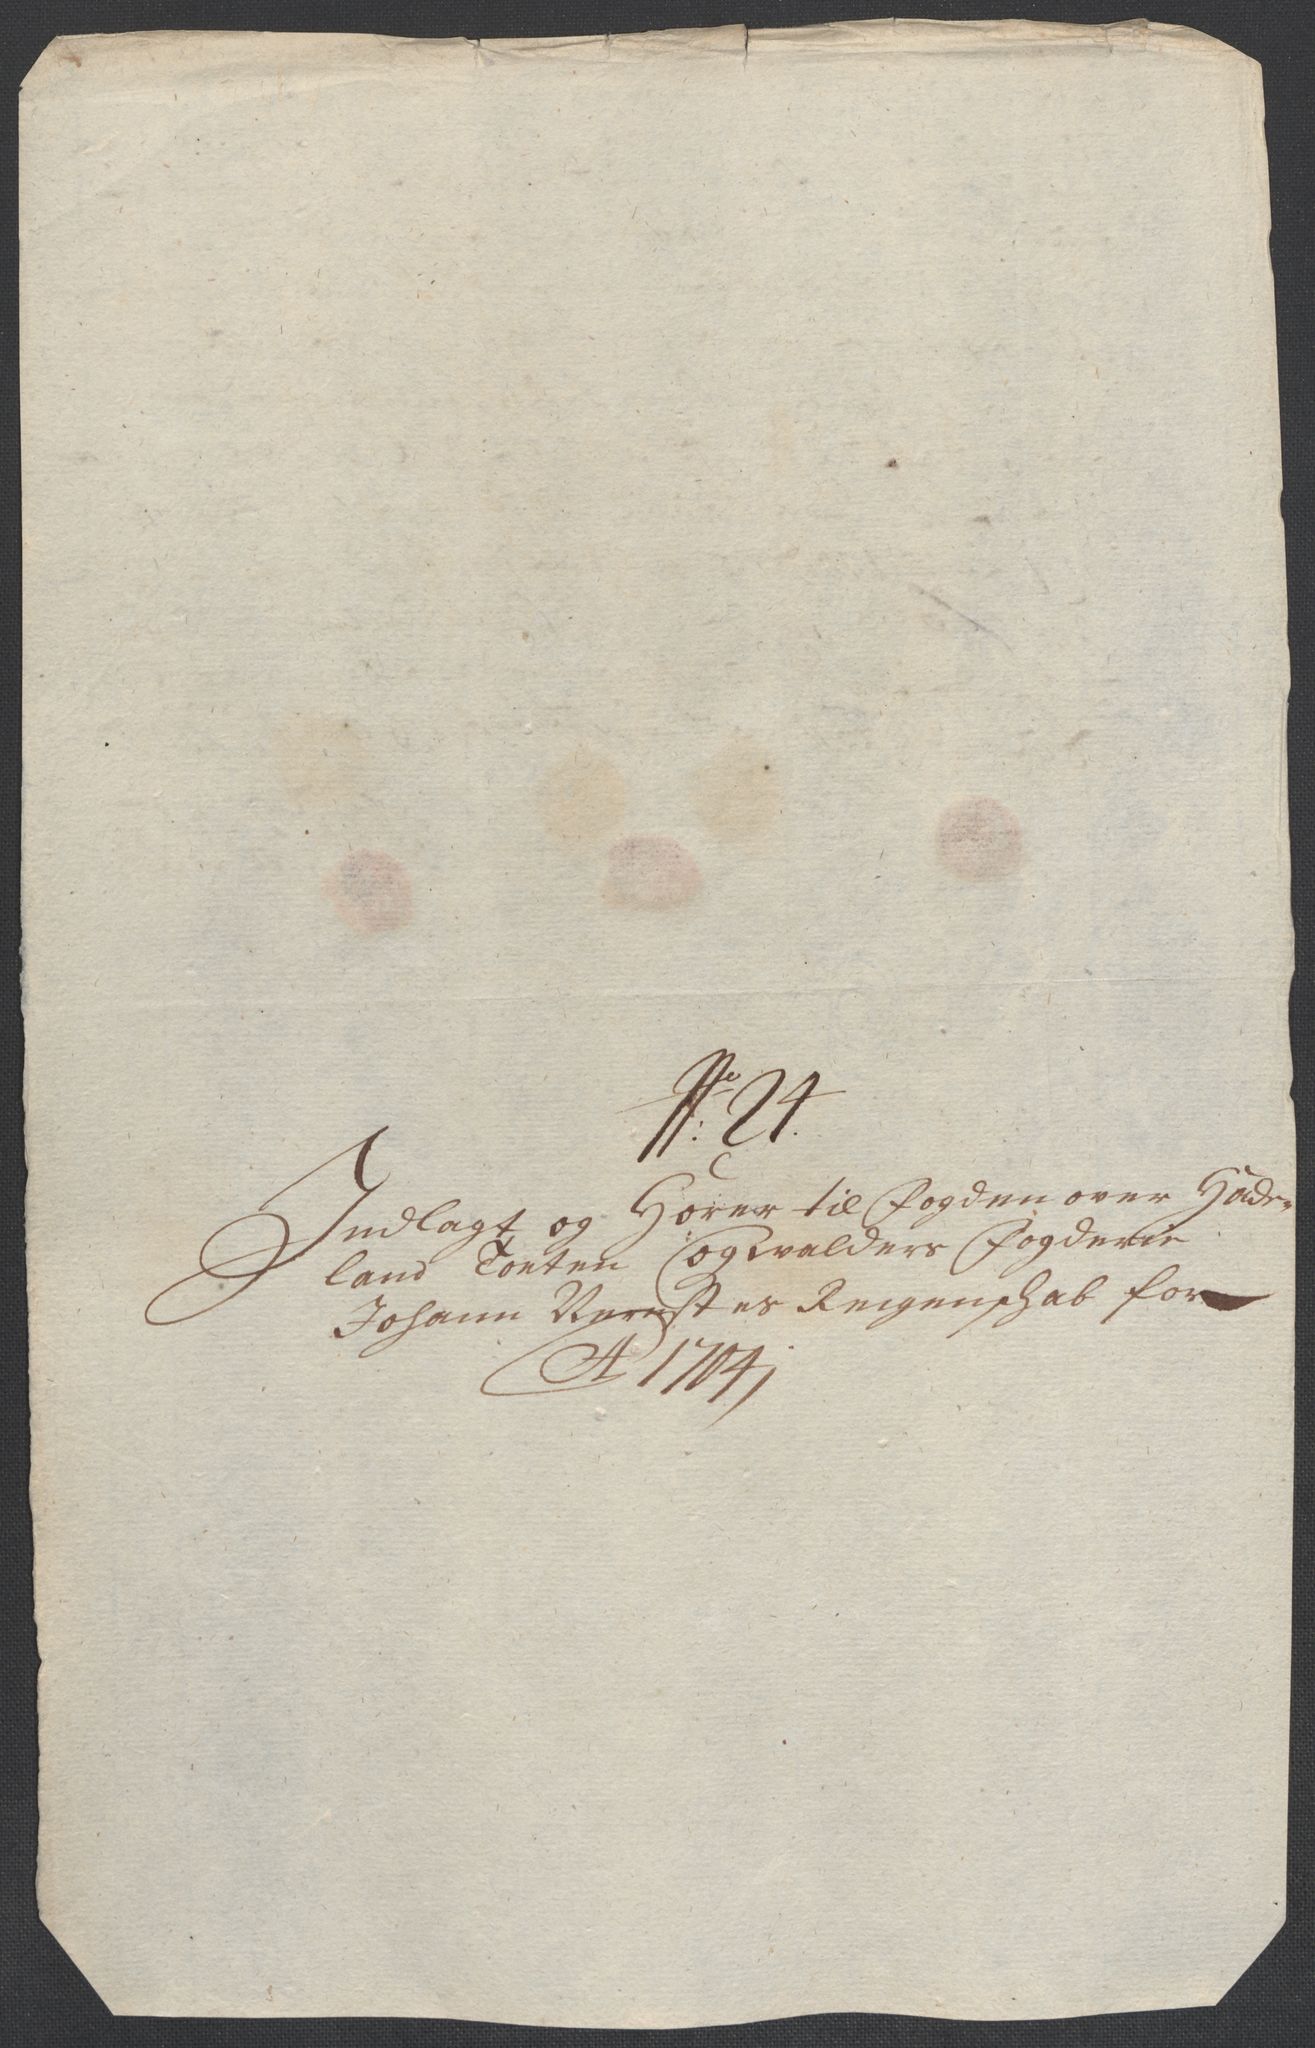 No: 24.
Indlagt og Hörer til Fogden over Hade-
land Toeten og Walders Fogderie
Johann Vernst es Regenschab for
A 1704